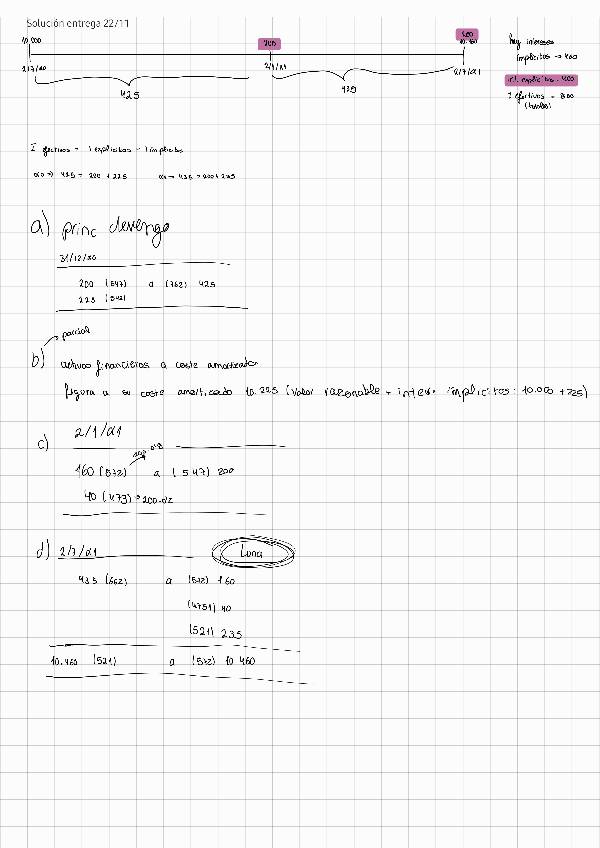 Solución entrega 22/11
10.000 200 200
10.460
2/7/a0 2/1/a1 2/7/a1
425 435
hay intereses
implícitos → 460
int. explícitos = 400
I efectivos = 860
(totales)
I efectivos = I explícitos + I implícitos
a0 → 425 = 200 + 225 a1 → 435 = 200 + 235
a) princ devengo
31/12/a0
200 (547) a (762) 425
225 (541)
parcial
b) activos financieros a coste amortizado
figura a su coste amortizado 10.225 (valor razonable + inter. implícitos: 10.000 + 225)
c) 2/1/a1
160 (572) a (547) 200
200·0'8
40 (473) → 200·0'2
d) 2/7/a1 Luna
435 (662) a (572) 160
(4751) 40
(521) 235
10.460 (521) a (572) 10.460